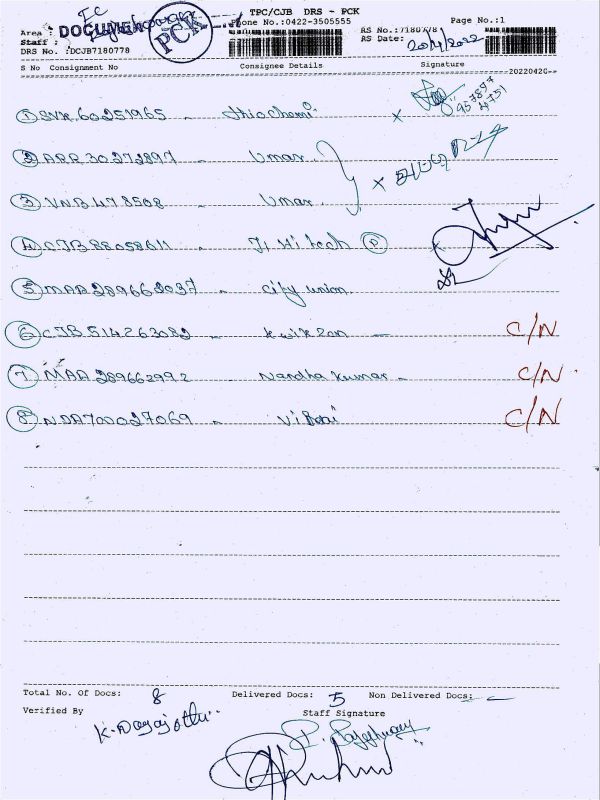 TPC/CJB DRS - PCK
Phone No.:0422-3505555
Page No.:1
Area :
DOCUMENT
PCK
Staff :
DRS No. :DCJB7180778
RS No.:7180778
RS Date: 20/4/2022
S No Consignment No Consignee Details Signature
20220420
1 SVK 60251965 - thiochemi x
2 ARR 30272897 - Umar
3 VNB 478508 - Umar x
4 CJB 88058611 - Ji Hi tech P x
5 MAA 289662037 - City union
6 CJB 514263082 - - C/N
7 MAA 289662992 - Nandha kumar - C/N
8 NDA 700027069 - C/N
Total No. Of Docs: 8 Delivered Docs: 5 Non Delivered Docs: -
Verified By Staff Signature